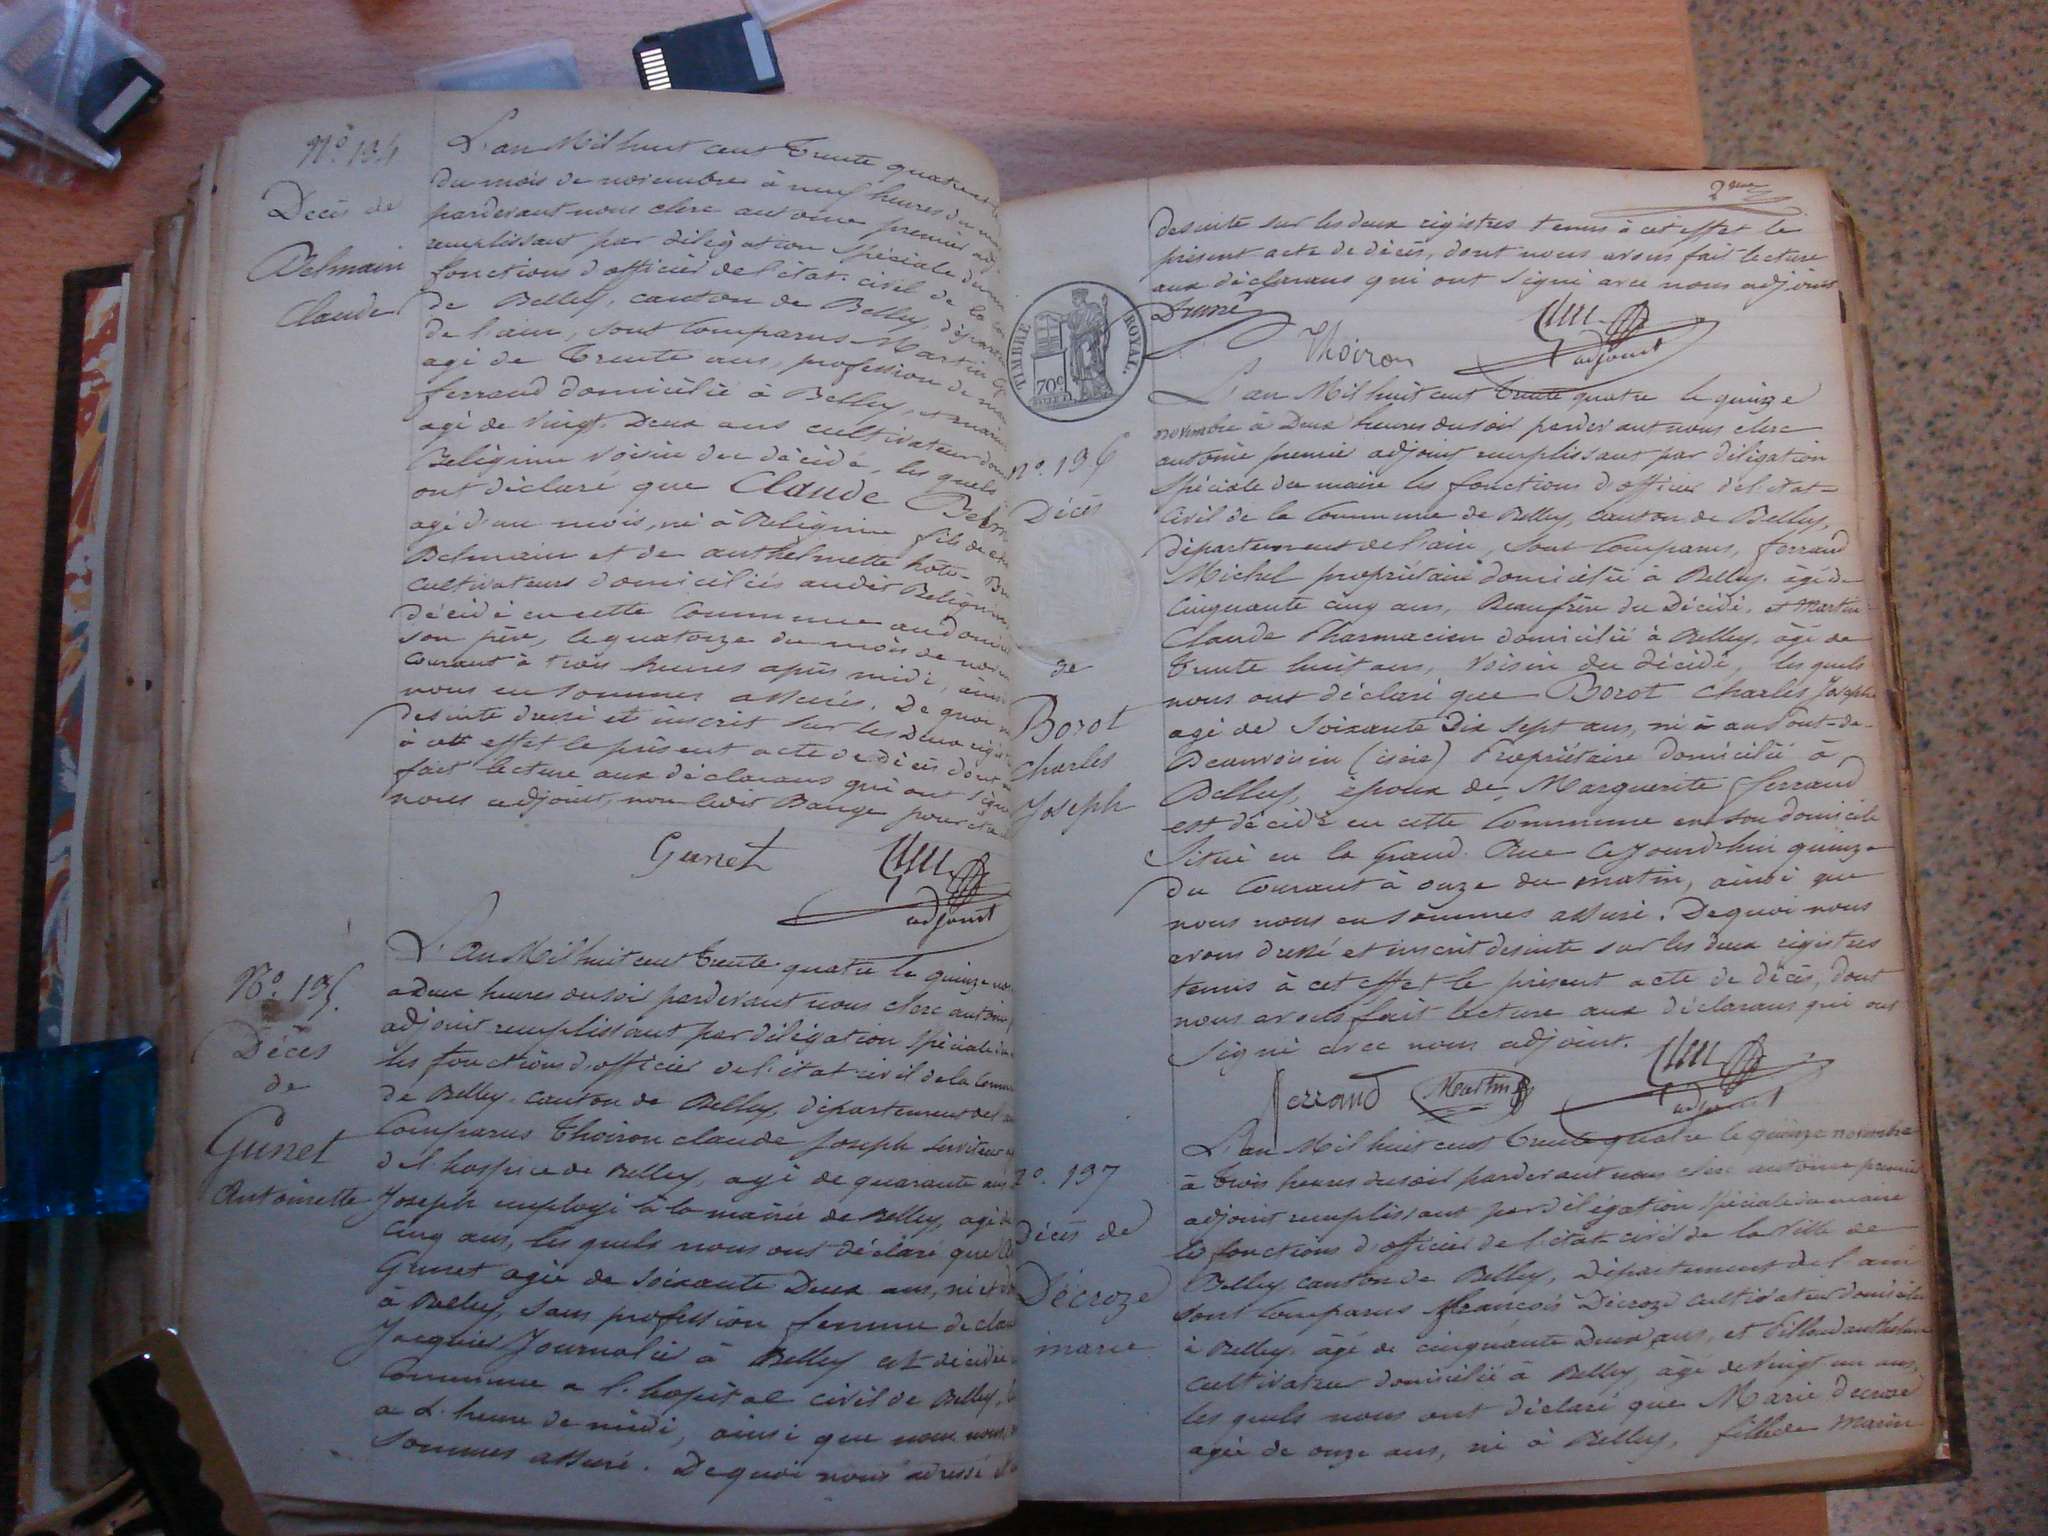 N.º 194
Décès de
Belmain
Claude
L'an Mil huit cent trente quatre et le
du mois de novembre à neuf heures du
pardevant nous clerc antoine premier adj.
remplissant par délégation spéciale du
fonctions d'officier de l'état civil de la
de Belley, canton de Belley,
de l'ain, sont Comparus Martin
agé de trente ans, profession de
ferrand domicilié à Belley, et marin
agé de vingt-Deux ans cultivateur
Béligneu voisin du décédé, les quels
ont déclaré que Claude
agé d'un mois, né à Béligneu fils de
Belmain et de anthelmette
cultivateurs domiciliés audit
décédé en cette Commune au
son père, le quatorze du mois de
courant à trois heures après midi,
nous en sommes assurés. De quoi
desuite dressé et inscrit sur les Deux
à cet effet le présent acte de décès dont
fait lecture aux déclarans qui ont
nous adjoint, non ledit
Gunet
adjoint
N.º 195.
Décès
de
Gunet
Antoinette
L'An Mil huit cent trente quatre le quinze
a deux heures du soir pardevant nous clerc antoine
adjoint remplissant par délégation spéciale
les fonctions d'officier de l'état civil de la
de Belley, canton de Belley, département de
Comparus Thoiron claude Joseph serviteur
de l'hospice de Belley, agé de quarante
Joseph employé à la mairie de Belley, agé
cinq ans, les quels nous ont déclaré que
Gunet agée de soixante Deux ans,
à Belley, sans profession femme de
Jacquier Journalier à Belley est décédée
Commune a l'hopital civil de Belley,
a l'heure de midi, ainsi que nous nous
sommes assuré. De quoi nous
2ème
desuite sur les deux registres tenus à cet effet le
présent acte de décès, dont nous avons fait lecture
aux déclarans qui ont signé avec nous adjoint
Thoiron
adjoint
TIMBRE ROYAL.
70c
N.º 196
Décès
de
Borot
Charles
Joseph
L'an Mil huit cent trente quatre le quinze
novembre à Deux heures du soir pardevant nous clerc
antoine premier adjoint remplissant par délégation
spéciale du maire les fonctions d'officier de l'état-
civil de la Commune de Belley, canton de Belley,
département de l'ain, sont Comparus, ferrand
Michel propriétaire domicilié à Belley, agé de
Cinquante cinq ans, Beaufrère du Décédé, et Martin
Claude Pharmacien domicilié à Belley, agé de
trente huit ans, voisin du décédé, les quels
nous ont déclaré que Borot Charles Joseph
agé de soixante Dix sept ans, né à au Pont-de-
Beauvoisin (isère) Propriétaire domicilié à
Belley, époux de Marguerite ferrand
est décédé en cette Commune en son domicile
situé en la Grand Rue Cejourd'hui quinze
du Courant à onze du matin, ainsi que
nous nous en sommes assuré. De quoi nous
avons dressé et inscrit desuite sur les deux registres
tenus à cet effet le présent acte de décès, dont
nous avons fait lecture aux déclarans qui ont
signé avec nous adjoint.
ferrand Martin
adjoint
2º. 197
Décès de
Décroze
marie
L'an Mil huit cent trente quatre le quinze novembre
à trois heures du soir pardevant nous clerc antoine premier
adjoint remplissant par délégation spéciale du maire
les fonctions d'officier de l'état-civil de la ville de
Belley canton de Belley, Département de l'ain
sont Comparus françois Décroze cultivateur domicilié
à Belley, agé de cinquante Deux ans, et
cultivateur domicilié à Belley, agé de vingt un ans,
les quels nous ont déclaré que Marie decroze
agée de onze ans, né à Belley, fille de Marin